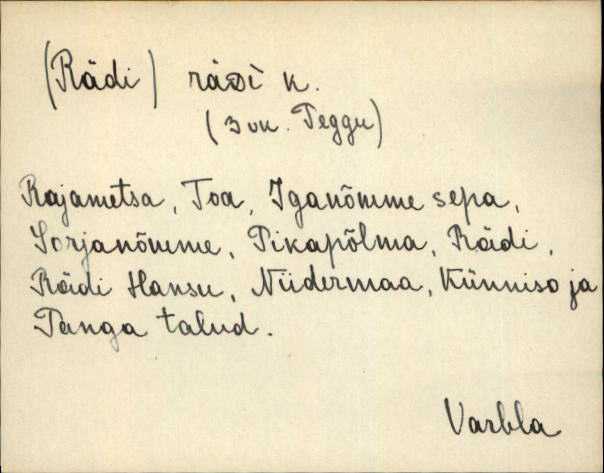 (Rädi) räDì k.
(З vk. Teggu)
Rajametsa, Toa, Iganõmme sepa,
Sorjanõmme, Pikapõlma, Rädi,
Rädi Hansu, Niidermaa, Künniso ja
Panga talud.
Varbla